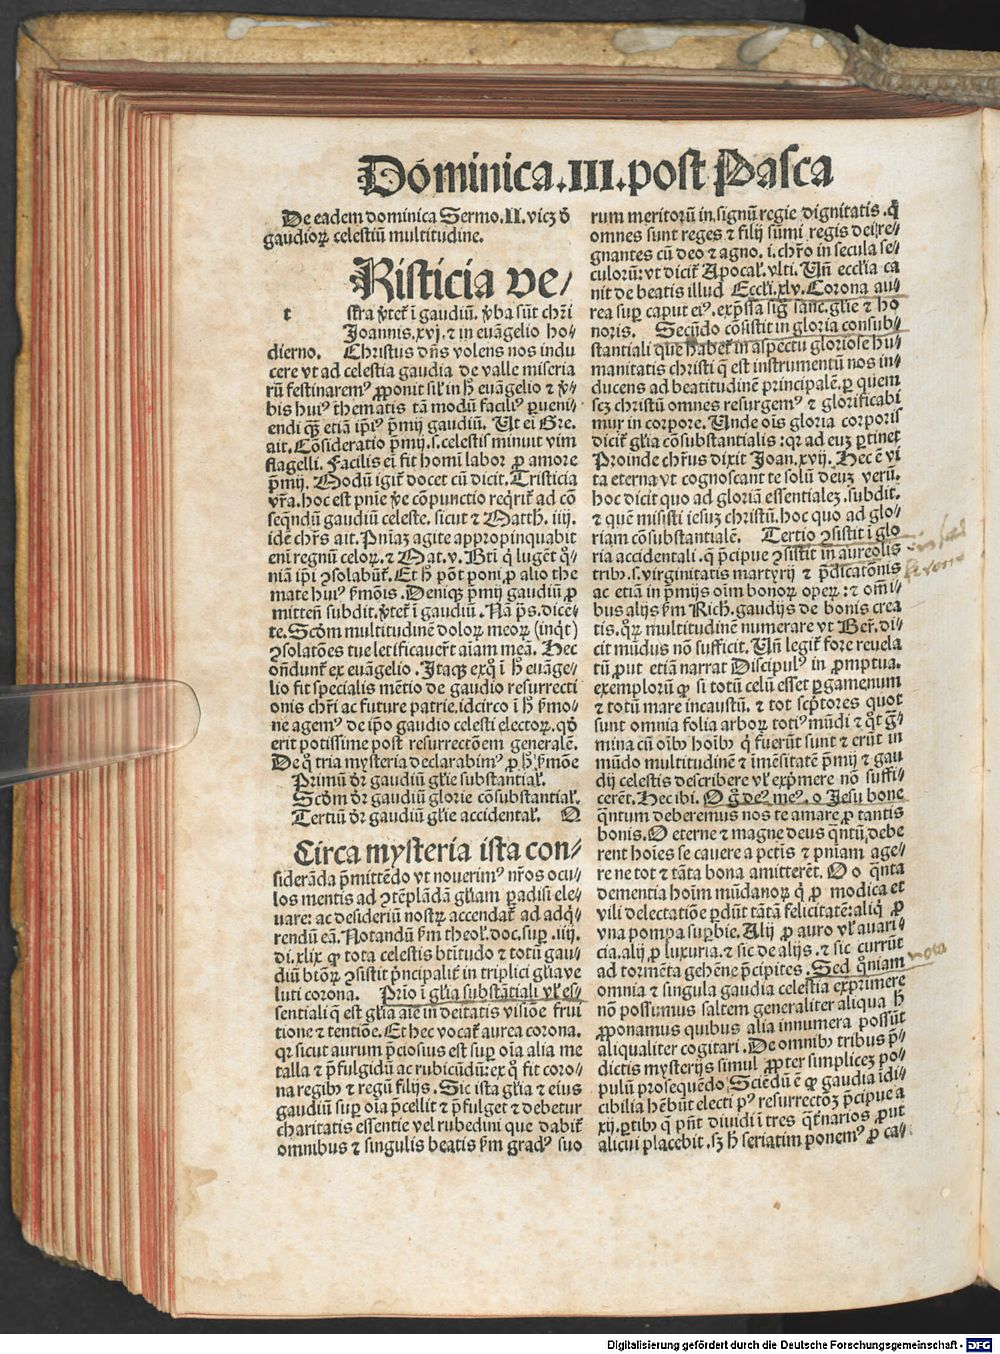 Dominica.III.post Pasca
De eadem dominica Sermo.II.vicꝫ ꝺ̄
gaudioꝝ celestiū multitudine.
Risticia ve⸗
t stra v̓tet᷑ ī gaudiū. v̓ba sūt chr̄i
Joannis.xvj. ⁊ in euāgelio ho⸗
dierno. Christus dn̄s volens nos indu
cere vt ad celestia gaudia de valle miseria
rū festinaremꝰ ꝓponit sil̓ in h̄ euāgelio ⁊ v̓⸗
bis huiꝰ thematis tā modū faciliꝰ ꝑueni⸗
endi qꝫ etiā ip̄iꝰ p̄mij gaudiū. Ut ei̅ Gre.
ait. Cōsideratio p̄mij.s.celestis minuit vim
flagelli. Facilis ei̅ fit homī labor ꝓ amore
p̄mij. Modū igit᷑ docet cū dicit. Tristicia
vr̄a. hoc est pnīe v̓e cōpunctio reqrit᷑ ad cō
seqn̄dū gaudiū celeste. sicut ⁊ Matth. iiij.
idē chr̄s ait. Pniaꝫ agite appropinquabit
eni̅ regnū celoꝝ. ⁊ Mat. v. Btī q̇ luget̄ qm̄
niā ip̄i ꝯsolabūt᷑. Et h̄ pōt poni ꝓ alio the
mate huiꝰ s̓mōnis. Deniqꝫ p̄mij gaudiū ꝓ
mitten̄ subdit. v̓tet᷑ ī gaudiū. Nā p̄s. dicē⸗
te. Scd̄m multitudinē doloꝝ meoꝝ (inqt)
ꝯsolatōes tue letificauer̄t aīam meā. Hec
on̄dunt᷑ ex euāgelio. Itaqꝫ exq̇ ī h̄ euāge⸗
lio fit specialis mētio de gaudio resurrecti
onis chr̄i ac future patrie. idcirco ī h̄ s̓mo⸗
ne agemꝰ de ip̄o gaudio celesti electoꝝ. qd̄
erit potissime post resurrectōem generalē.
De q̇ tria mysteria declarabimꝰ ꝑ h̄ s̓mōe
Primū dr̄ gaudiū gl̓ie substantial̓.
Scd̄m dr̄ gaudiū glorie cōsubstantial̓.
Tertiū dr̄ gaudiū gl̓ie accidental̓. O
Circa mysteria ista con⸗
siderāda p̄mittēdo vt nouerimꝰ nr̄os ocu⸗
los mentis ad ꝯtēplādā gl̓iam ꝑadisi ele⸗
uare: ac desideriū nostꝝ accendat᷑ ad adq̇⸗
rendū eā. Notandū s̓m theol. doc. suꝑ .iiij.
di.xlix ꝙ tota celestis btītudo ⁊ totū gau⸗
diū btōꝝ ꝯsistit p̄ncipalit̓ in triplici gl̓ia ve
luti corona. Prīo ī gl̓ia substātiali vl̓ es⸗
sentiali q̇ est gl̓ia aīe in deitatis visiōe frui
tione ⁊ tentiōe. Et hec vocat᷑ aurea corona.
qꝛ sicut aurum p̄ciosius est suꝑ oīa alia me
talla ⁊ p̄fulgidū ac rubicūdū: ex q̇ fit coro⸗
na regibꝰ ⁊ regū filijs. Sic ista gl̓ia ⁊ eius
gaudiū suꝑ oīa p̄cellit ⁊ p̄fulget ⁊ debetur
charitatis essentie vel rubedini que dabit᷑
omnibus ⁊ singulis beatis s̓m gradꝰ suo
rum meritorū in signū regie dignitatis. q̇
omnes sunt reges ⁊ filij sūmi regis dei re⸗
gnantes cū deo ⁊ agno. i. chr̄o in secula se⸗
culorū: vt dicit᷑ Apocal. vlti. Un̄ eccl̓ia ca
nit de beatis illud Eccl̓i. xlv. Corona au⸗
rea suꝑ caput eiꝰ. exp̄ssa sig̅ sanc. gl̓ie ⁊ ho
noris. Secūdo cōsistit in gloria consub⸗
stantiali que habet᷑ in aspectu gloriose hu⸗
manitatis christi q̇ est instrumentū nos in⸗
ducens ad beatitudinē principalē. ꝑ quem
scꝫ christū omnes resurgemꝰ ⁊ glorificabi
mur in corpore. Unde oīs gloria corporis
dicit᷑ gl̓ia cōsubstantialis: qꝛ ad euꝫ ꝑtinet
Proinde chr̄us dixit Joan. xvij. Hec ē vi
ta eterna vt cognoscant te solū deuꝫ verū.
hoc dicit quo ad gloriā essentialeꝫ. subdit.
⁊ quē misisti iesuꝫ christū. hoc quo ad glo⸗
riam cōsubstantialē. Tertio ꝯsistit ī glo
ria accidentali. q̇ p̄cipue ꝯsistit in aureolis
tribꝰ.s.virginitatis martyrij ⁊ p̄dicatōnis
ac etiā in p̄mijs oīm bonoꝝ opeꝝ: ⁊ om̄i⸗
bus alijs s̓m Rich. gaudijs de bonis crea
tis. qr̄ꝝ multitudinē numerare vt Ber̄. di⸗
cit mūdus nō sufficit. Un̄ legit᷑ fore reuela
tū ꝓut etiā narrat Discipulꝰ in ꝓmptua.
exemplorū ꝙ si totū celū esset ꝑgamenum
⁊ totū mare incaustū. ⁊ tot sc̓ptores quot
sunt omnia folia arboꝝ totiꝰ mūdi ⁊ qt̓ grā
mina cū oībꝰ hoībꝰ q̇ fuerūt sunt ⁊ erūt in
mūdo multitudinē ⁊ īmēsitatē p̄mij ⁊ gau
dij celestis describere vl̓ exp̓mere nō suffi⸗
cerēt. Hec ibi. O g̊ deꝰ meꝰ. o Jesu bone
qn̄tum deberemus nos te amare ꝓ tantis
bonis. O eterne ⁊ magne deus qn̄tū debe
rent hoīes se cauere a pctis ⁊ pniam age⸗
re ne tot ⁊ tāta bona amitterēt. O o qn̄ta
dementia hoīm mūdanoꝝ q̇ ꝓ modica et
vili delectatiōe ꝑdūt tātā felicitatē: aliq̇ ꝓ
vna pompa suꝑbie. Alij ꝓ auro vl̓ auari⸗
cia. alij ꝓ luxuria. ⁊ sic de alijs. ⁊ sic currūt
ad tormēta gehēne p̄cipites. Sed qm̄niam
omnia ⁊ singula gaudia celestia exprimere
nō possumus saltem generaliter aliqua h̄
ꝓponamus quibus alia innumera possūt
aliqualiter cogitari. De omnibꝰ tribus p̄⸗
dictis mysterijs simul ꝓpter simpliceꝫ po⸗
pulū prosequēdo Sciēdū ē ꝙ gaudia īdi⸗
cibilia hēbūt electi pꝰ resurrectōꝫ p̄cipue a
xij. ꝑtibꝰ q̇ pn̄t diuidi ī tres qt̓narios ꝓut
alicui placebit. sꝫ h̄ seriatim ponemꝰ ꝓ ca⸗
nota
Digitalisierung gefördert durch die Deutsche Forschungsgemeinschaft - DFG